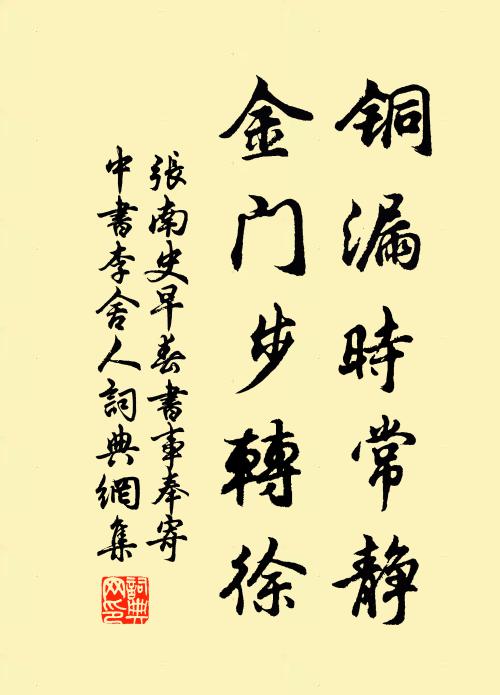 铜漏時常静
金门步轉徐
張南史早春書事奉寄
中書李舍人詞典網集